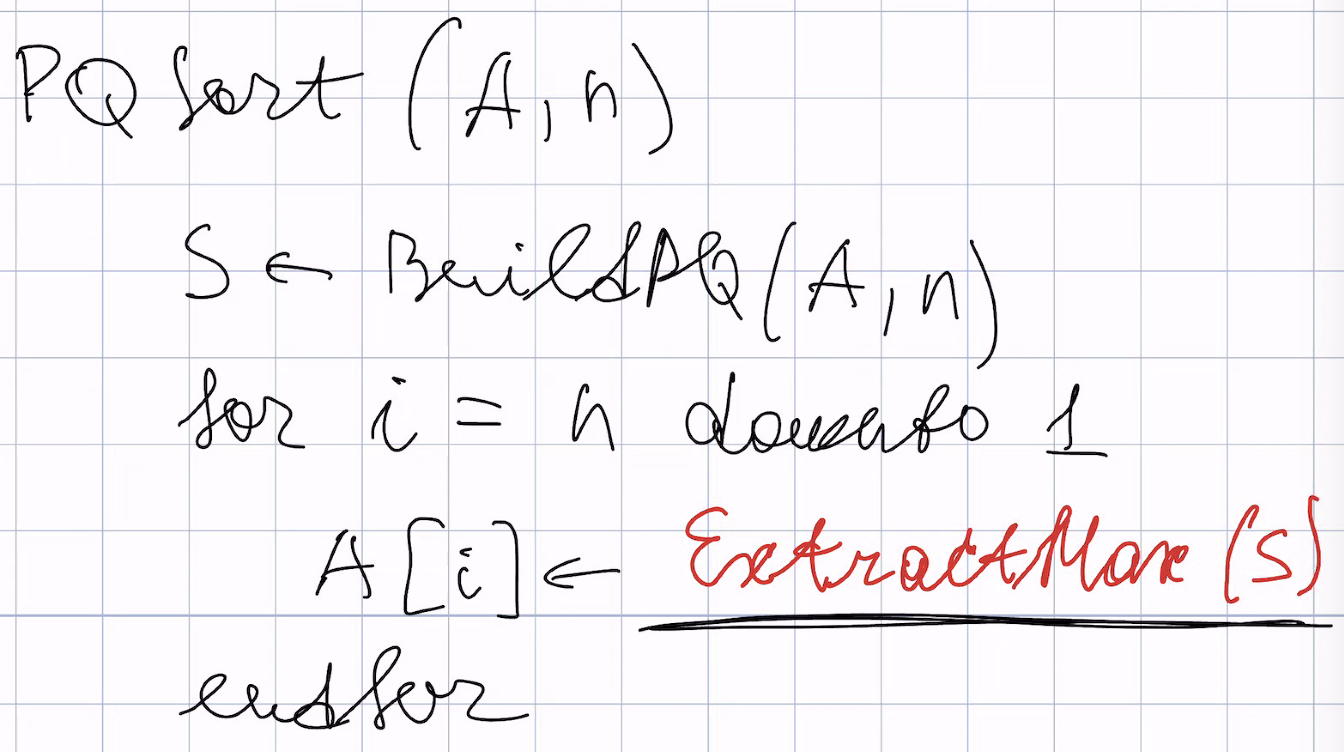 PQSort (A, n)
S ← BuildPQ (A, n)
for i = n downto 1
A[i] ← ExtractMax (S)
endfor